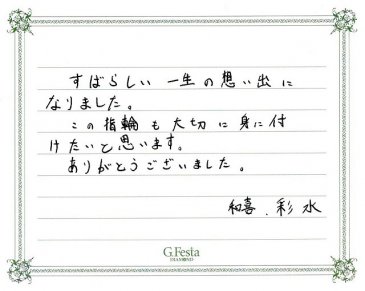 すばらしい一生の想い出に
なりました。
この指輪も大切に身に付
けたいと思います。
ありがとうございました。
和喜.彩水
G.Festa
DIAMOND